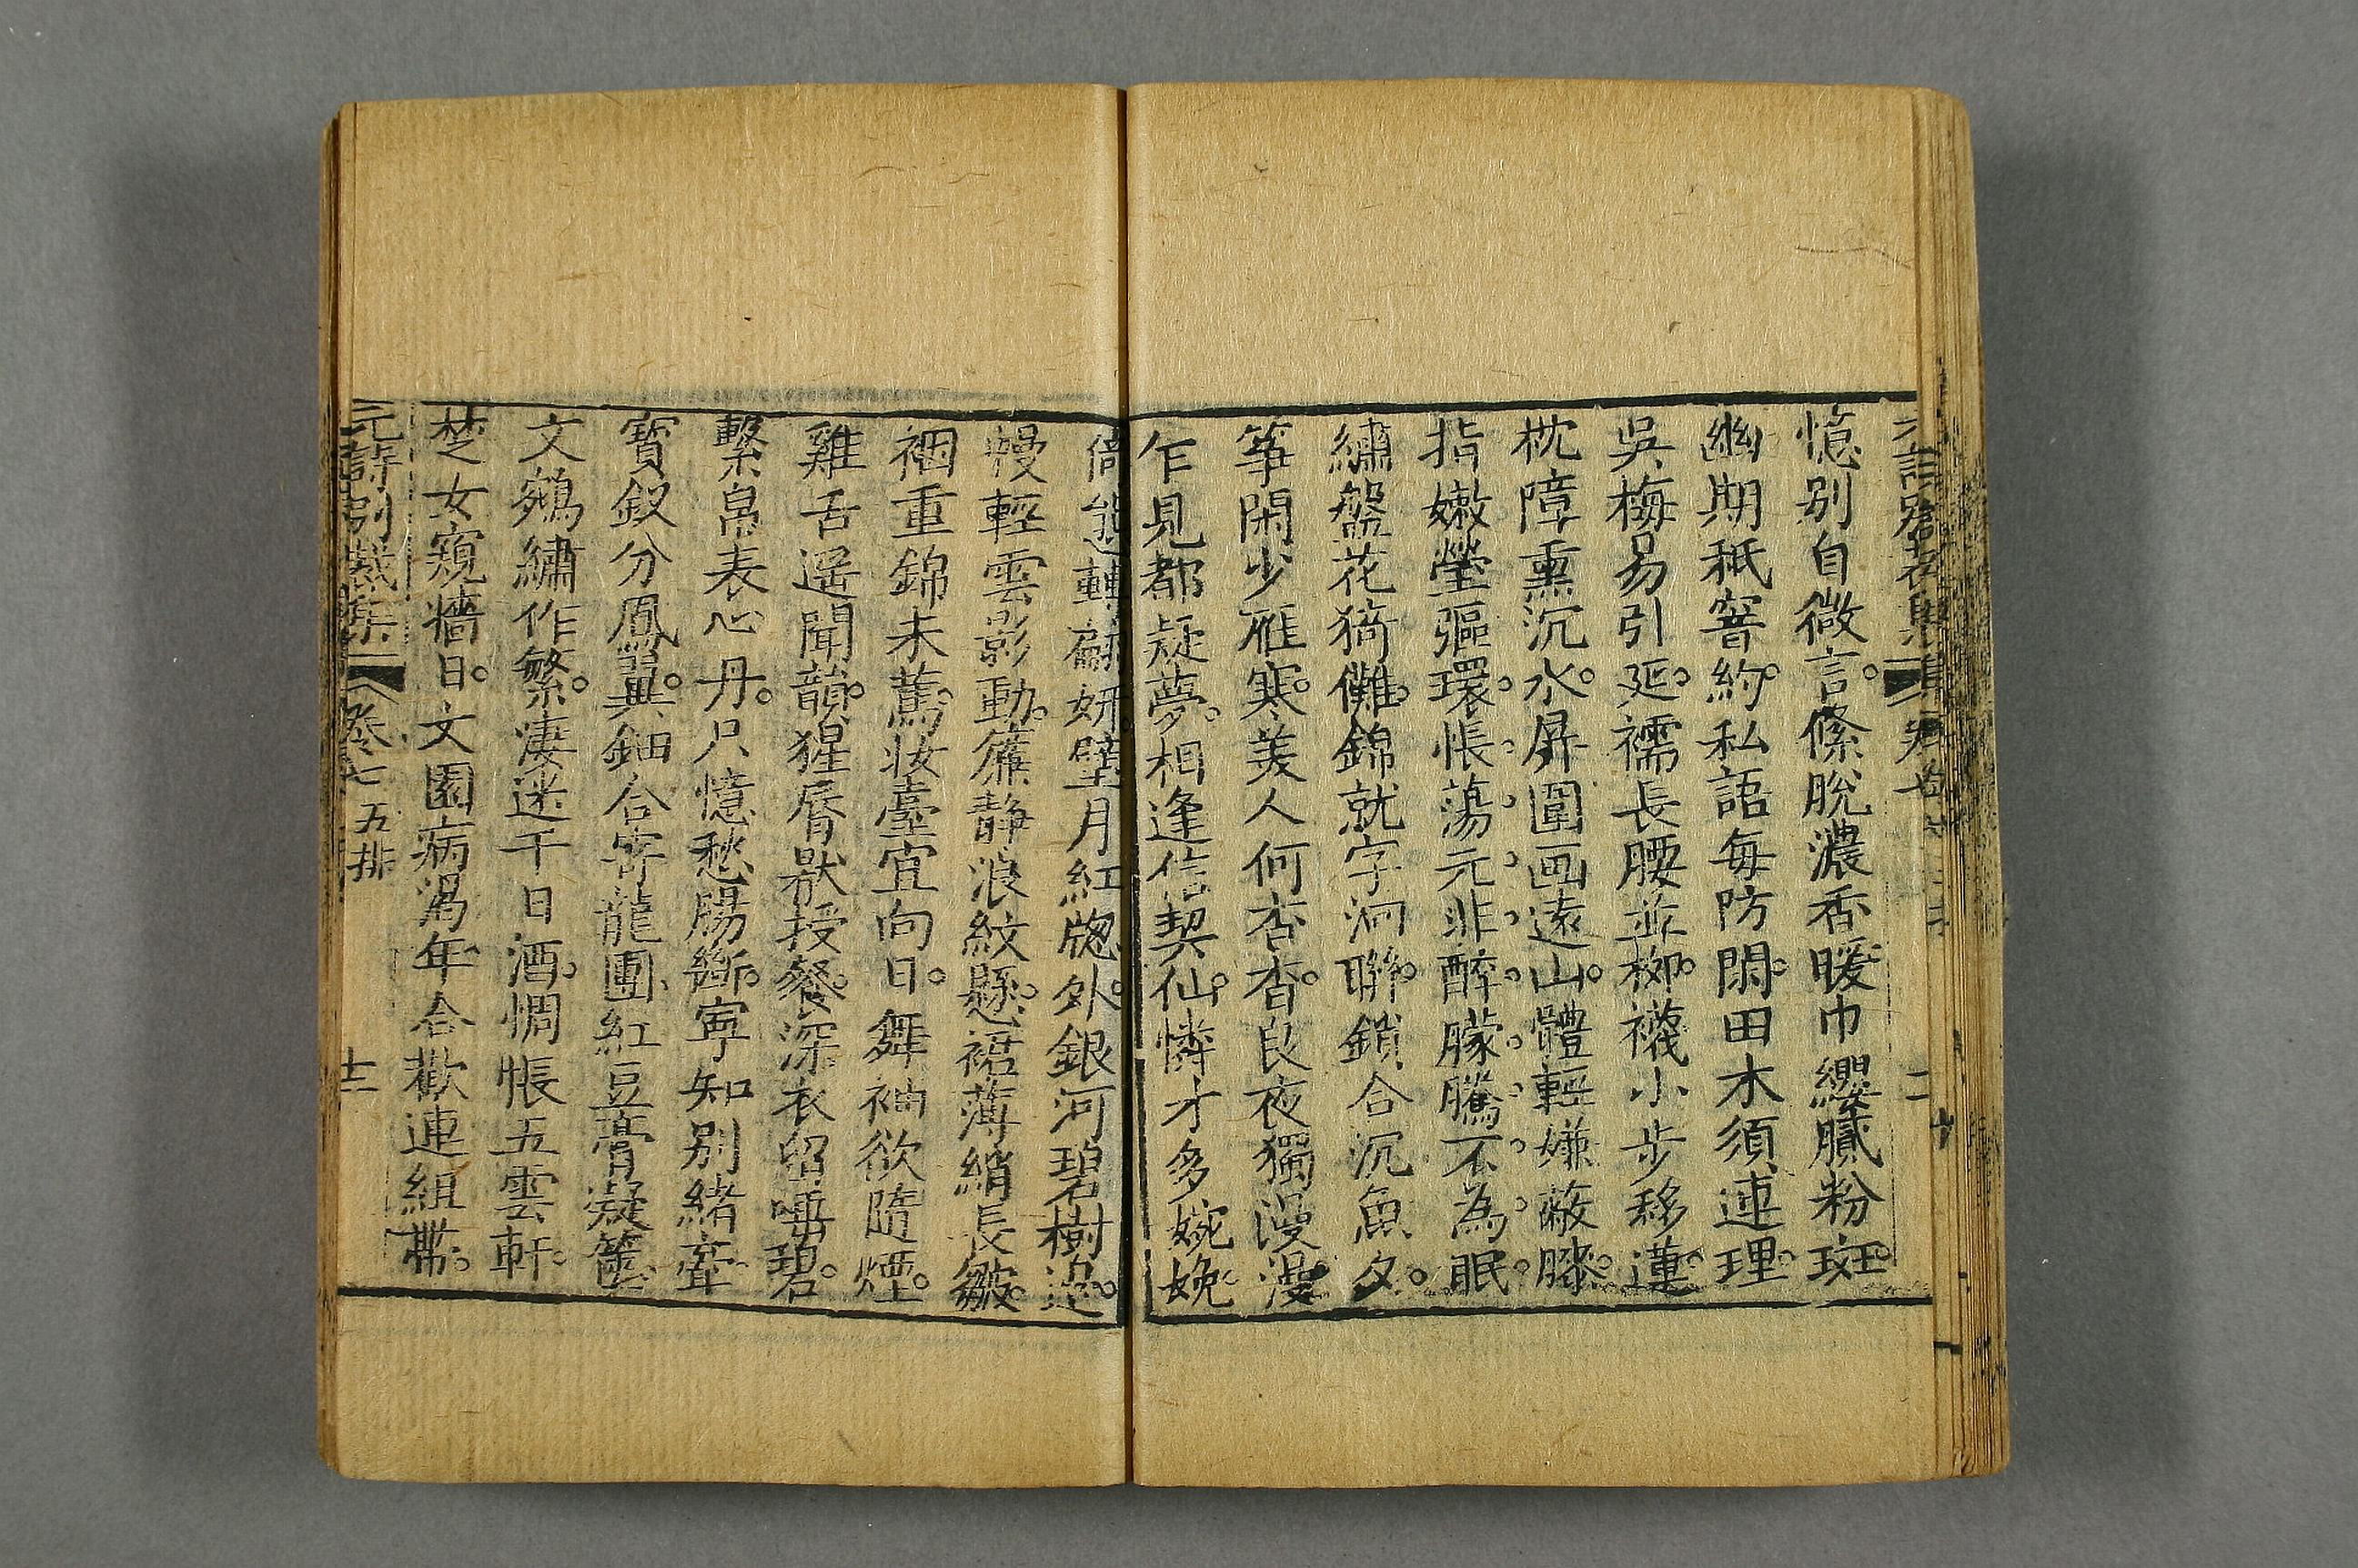 憶別自微言。絛脫濃香暖巾纓膩粉斑。
幽期秖窨約。私語每防閑。田木須連理。
吳梅易引延。襦長腰並栁。襪小步移蓮。
枕障熏沉水。屏圍画遠山。體輕嫌蔽膝。
指嫩瑩彄環。悵蕩元非醉。朦騰不為眠。
繡盤花猗儺。錦就字洄聯。鎖合沉魚夕。
筝閑少雁寒。美人何杳杳。良夜獨漫漫。
乍見都疑夢。相逢信契仙。憐才多婉娩。
倚
轉
妍。璧月紅牕外。銀河碧樹邊。
幔輕雲影動。簾静浪紋懸。裙薄綃長皺。
裀重錦未薦。妝臺宜向日。舞袖欲隨煙。
雞舌遥聞韻。猩脣獸授餐。深衣留唾碧。
繫帛表心丹。只憶愁腸斷。寧知別緒牽
寶釵分鳳翼。鈿合寄龍團。紅豆膏凝
文鵷繡作繁。凄迷千日酒。惆悵五雲軒。
楚女窺牆日。文園病渴年。合歡連組帶。
元詩別裁集 卷七 五排 十二